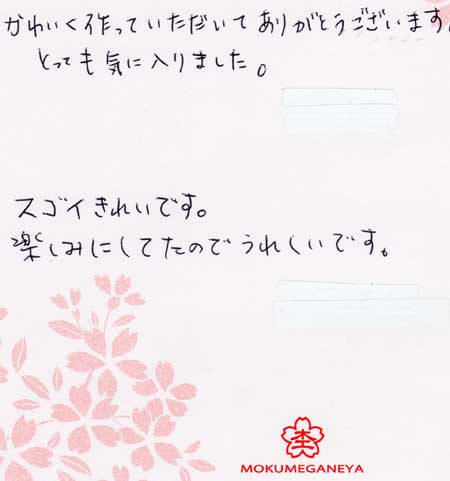 かわいく作っていただいてありがとうございます。
とっても気に入りました。
スゴイきれいです。
楽しみにしてたのでうれしいです。
MOKUMEGANEYA